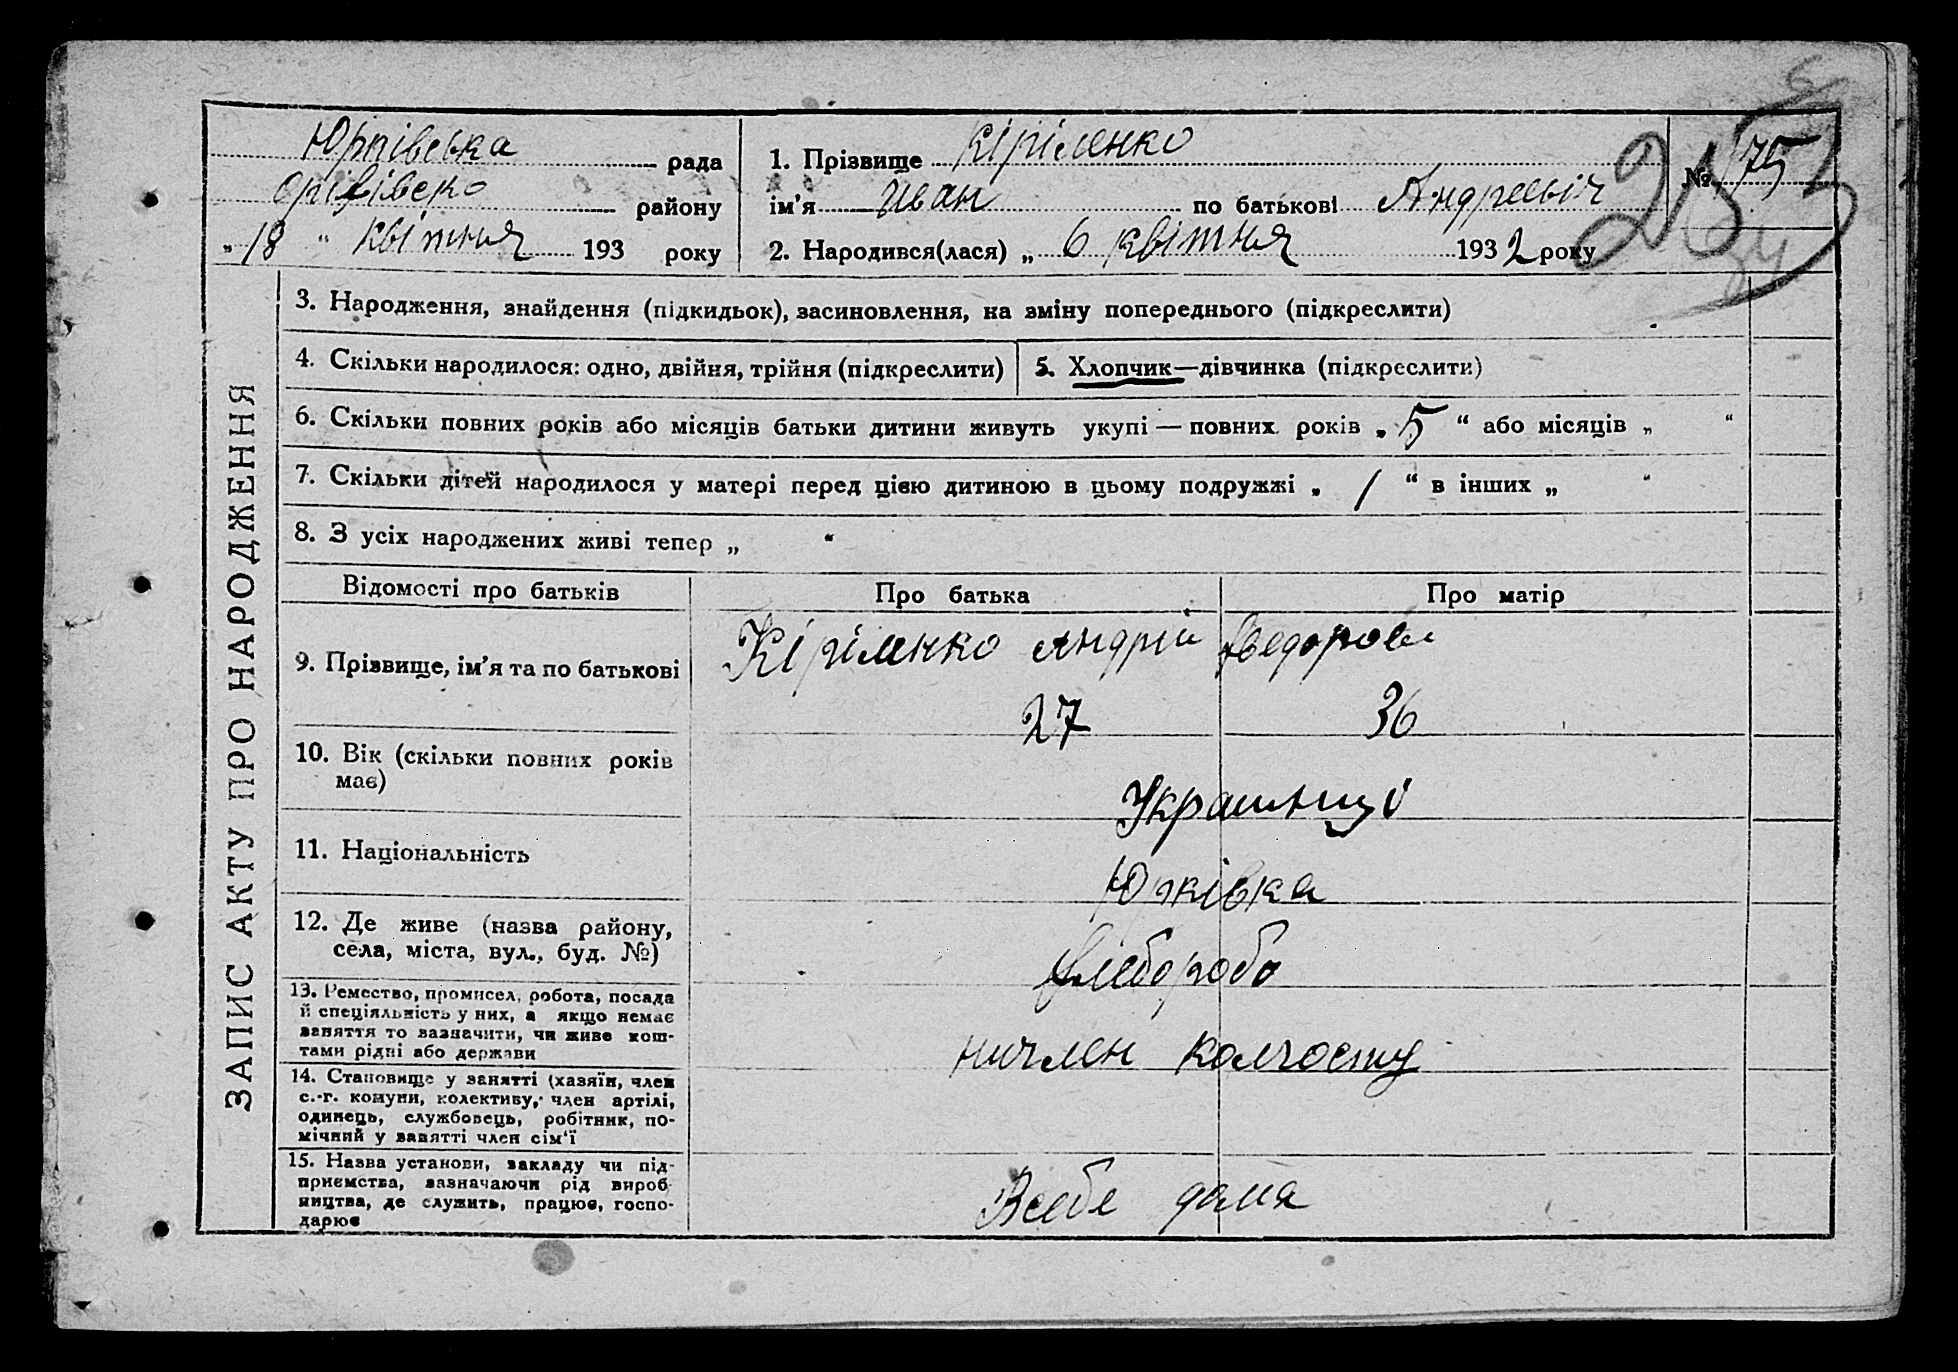 ЗАПИС АКТУ ПРО НАРОДЖЕННЯ
Юрківська рада
району
„ 18 “ квітня 193 року
1. Прізвище Кіріленко
ім'я Иван по батькові Андреевіч
№ 75
2. Народився(лася) „ 6 квітня 1932 року
3. Народження, знайдення (підкидьок), засиновлення, на зміну попереднього (підкреслити)
4. Скільки народилося: одно, двійня, трійня (підкреслити)
5. Хлопчик—дівчинка (підкреслити)
6. Скільки повних років або місяців батьки дитини живуть укупі — повних років „ 5 “ або місяців „ “
7. Скільки дітей народилося у матері перед цією дитиною в цьому подружжі „ 1 “ в інших „ “
8. З усіх народжених живі тепер „ “
Відомості про батьків
Про батька
Про матір
9. Прізвище, ім'я та по батькові
Кіріленко Андрій Федоров
10. Вік (скільки повних років
має)
27 36
11. Національність
Украинці
12. Де живе (назва району,
села, міста, вул., буд. №)
Юрківка
13. Ремество, промисел, робота, посада
й спеціяльність у них, а якщо немає
заняття то зазначити, чи живе кош-
тами рідні або держави
хлебороб
14. Становище у занятті (хазяїн, член
с.-г. комуни, колективу, член артілі,
одинець, службовець, робітник, по-
мічний у занятті член сім'ї
ничлен колгоспу
15. Назва установи, закладу чи під-
приємства, зазначаючи рід вироб-
ництва, де служить, працює, госпо-
дарює
Всебе дома